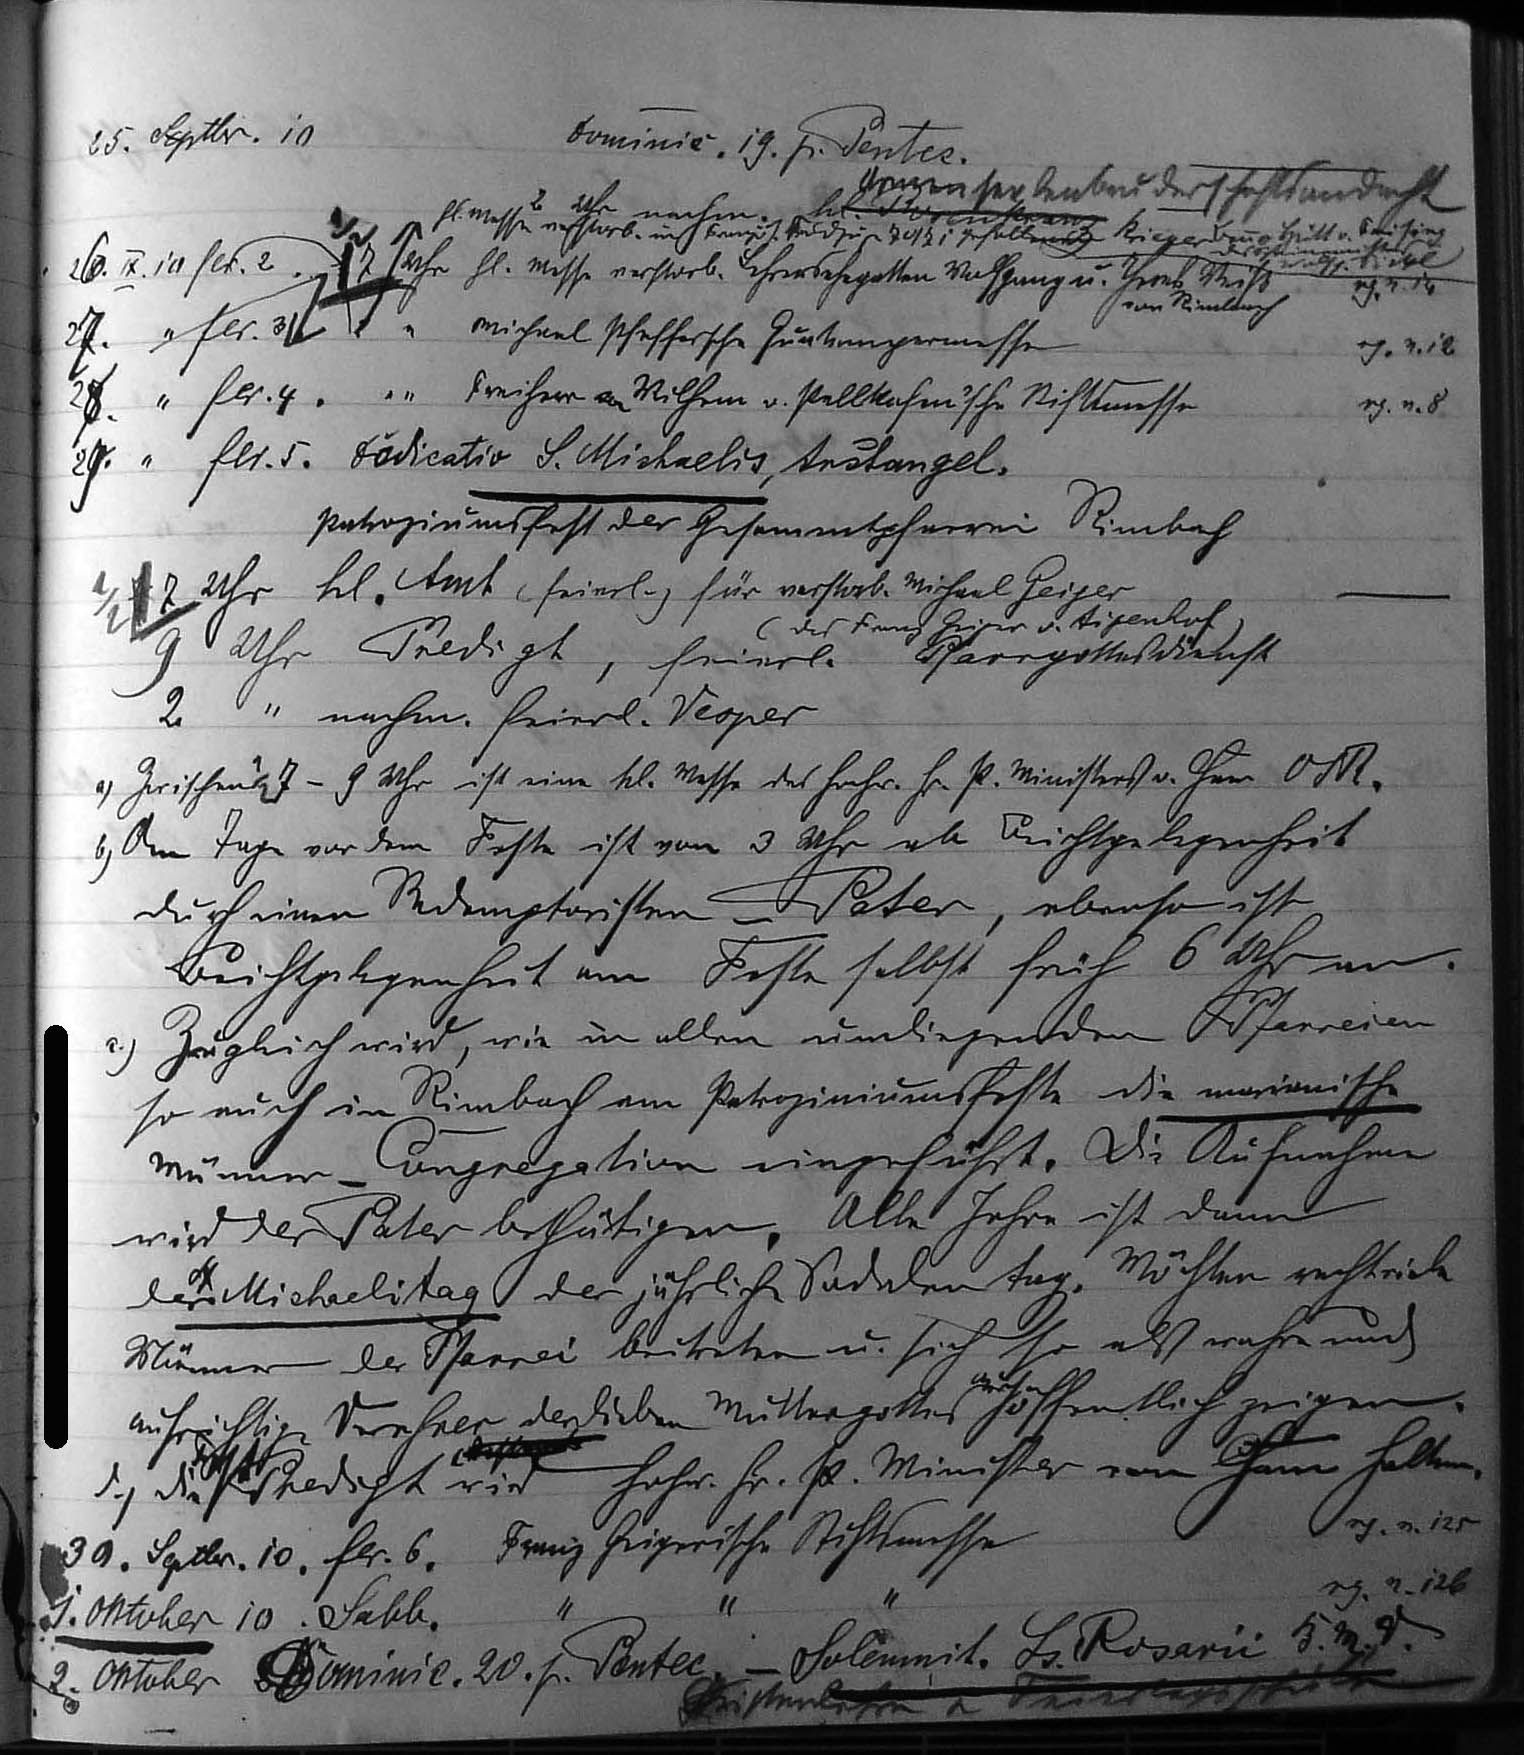 25. Septbr. 10 Dominic. 19. p. Pentec.
2 Uhr nachm. hl. Rosenkranz
26. IX. 10 fer. 2. 1/2 7 Uhr hl. Messe verstorb. Lehrersehegatten Wolfgang u. Theres
von Rimbach
27. " fer. 3 " " Michael Pfeffersche Quatempermesse rg. n. 12
28. " fer. 4. " " Freiherr Wilhem v. Pellkofen'sche Stiftmesse rg. n. 8
29. " fer. 5. Dedicatio S. Michaelis, Archangel.
Patroziumsfest der Gesammtpfarrei Rimbach
1/2 7 Uhr hl. Amt (feierl.) für verstorb. Michael Geiger
(des Franz Geiger v. Aigenhof)
9 Uhr Predigt, feierl. Pfarrgottesdienst
2 " nachm. feierl. Vesper
a) Zwischen 1/2 7 - 9 Uhr ist eine hl. Messe des hochw. H. P. Ministers v. Cham
b) Am Tage vor dem Feste ist von 3 Uhr ab Beichtgelegenheit
durch einen Redemptoristen - Pater, ebenso ist
Beichtgelegenheit am Feste selbst früh 6 Uhr an.
c.) Zugleich wird, wie in allen umliegenden Pfarreien
so auch in Rimbach am Patroziniumsfeste die marianische
Männer - Congregation eingeführt. Die Aufnahme
wird der Pater bethätigen. Alle Jahre ist dann
der Michaelitag der jährliche Sodalentag. Möchten recht viele
Männer der Pfarrei beitreten u. sich so als wahre und
aufrichtige Verehrer der lieben Muttergottes auch hoffentlich zeigen.
d.) die Fest Predigt wird hochw. Hr. P. Minister von Cham halten.
30. Septbr. 10. fer. 6. Franz Geigerische Stiftsmesse rg. n. 125
1. Oktober 10. Sabb. " " " rg. n. 126
2. Oktober Dominic. 20. p. Pentec. - Solemnit. Ss. Rosarii B. M. V.
Christenlehre